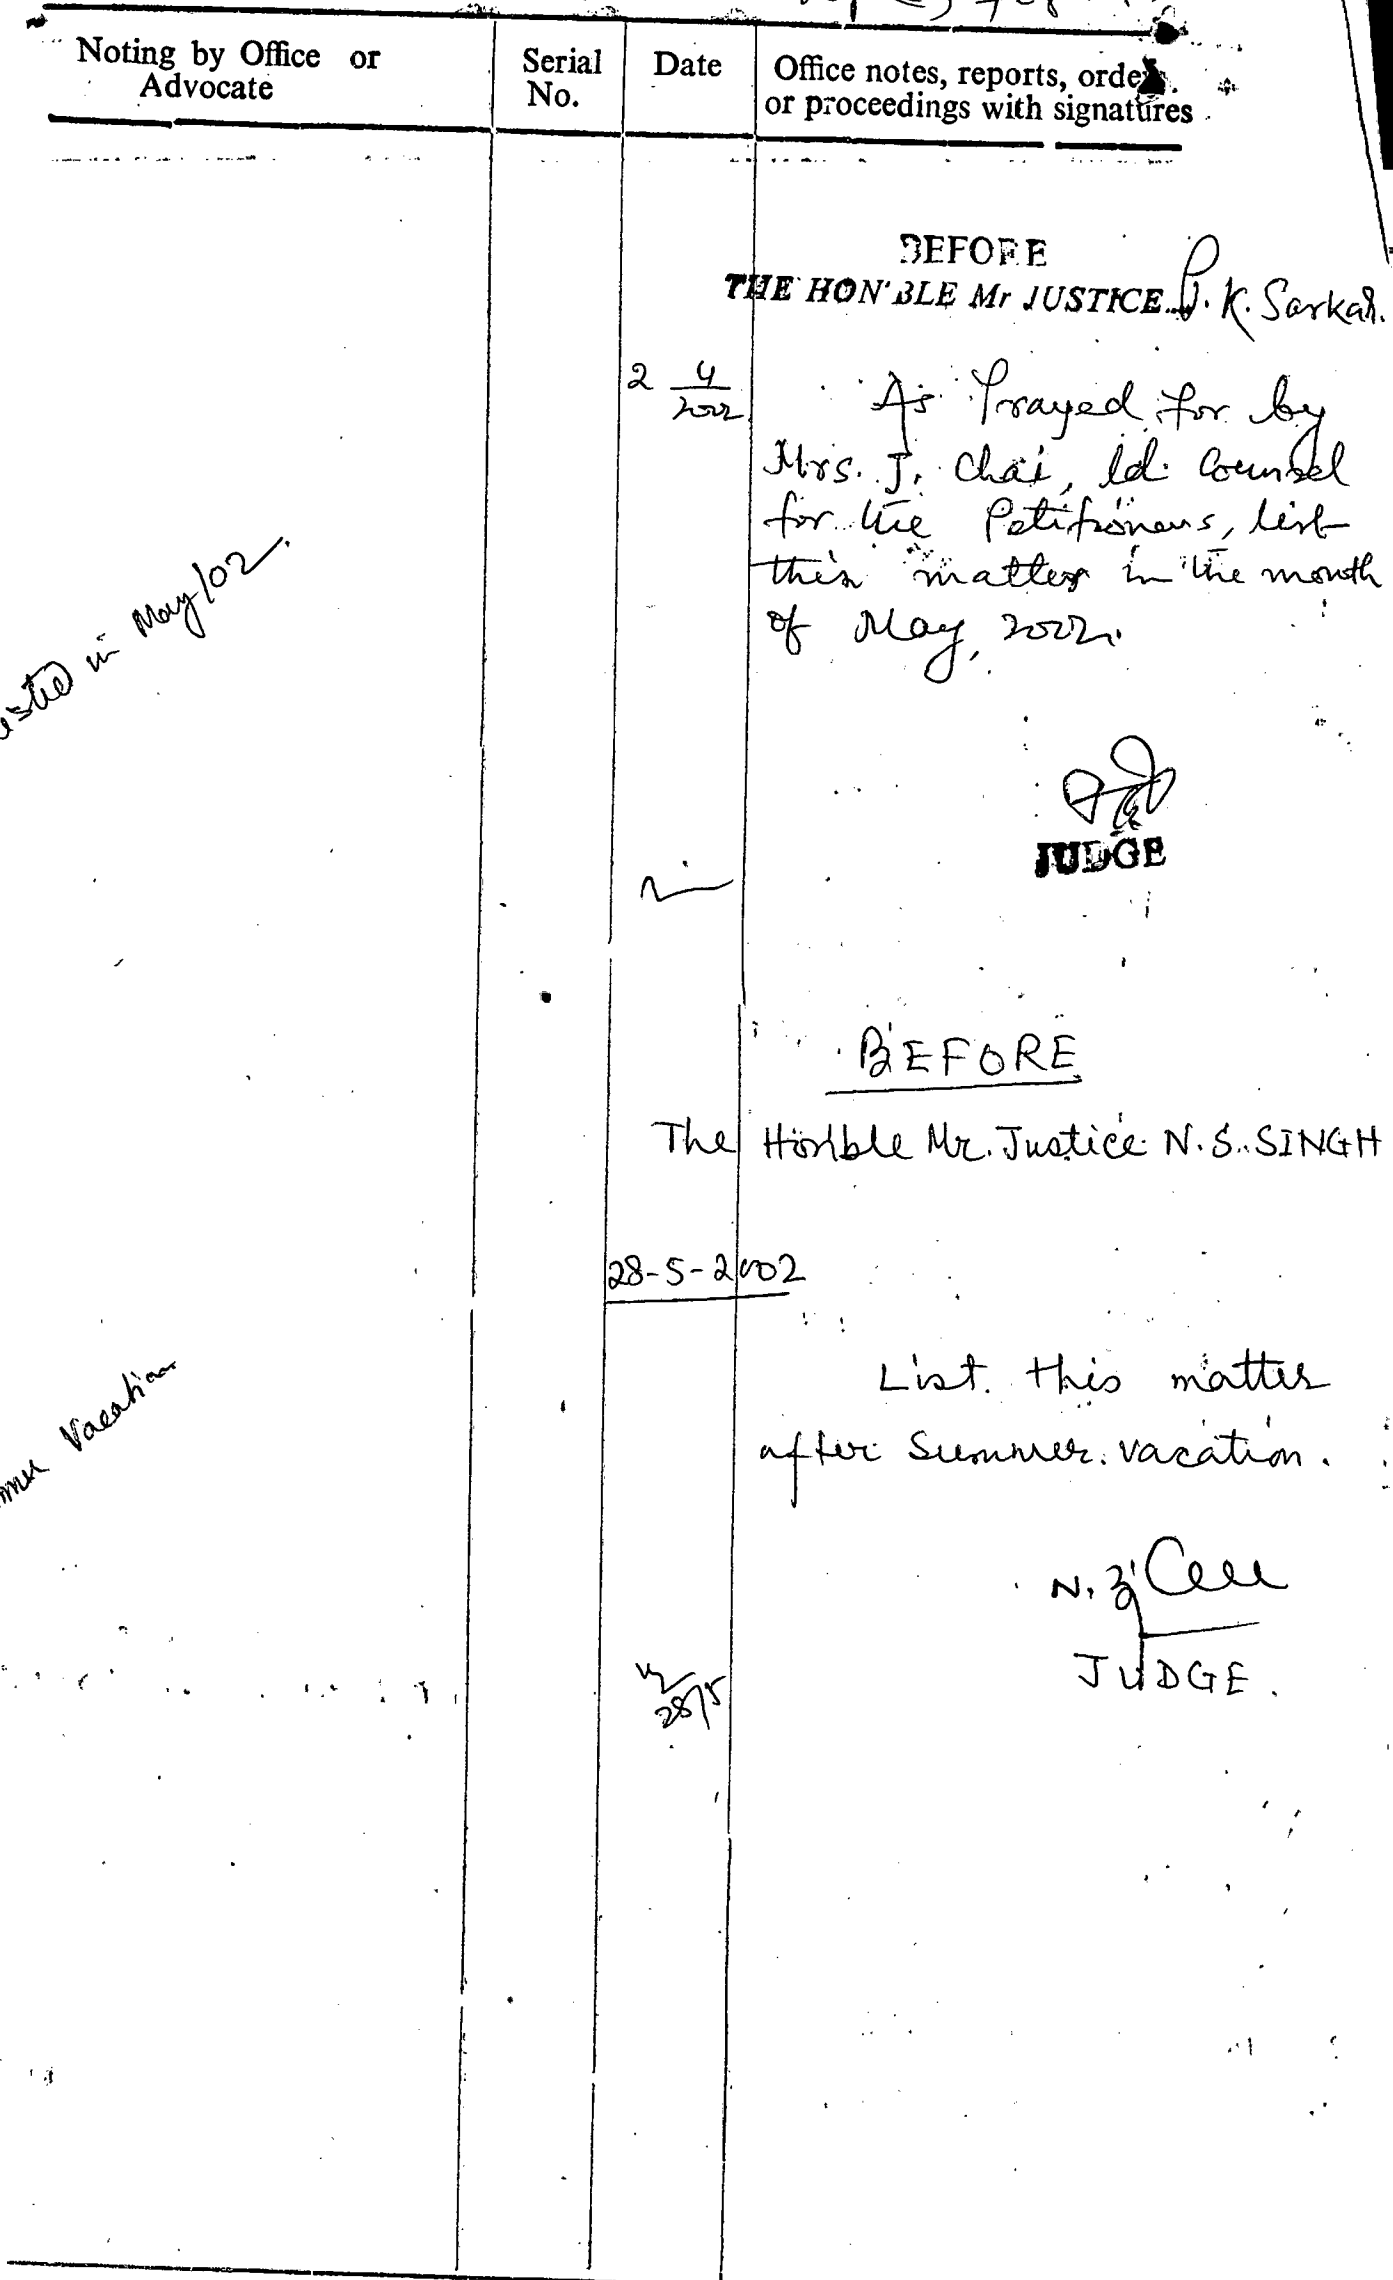 Noting by Office or
Advocate
Serial
No.
Date
Office notes, reports, orders
or proceedings with signatures
BEFORE
THE HON'BLE Mr JUSTICE P. K. Sarkar.
2 4
2002
As Prayed for by
Mrs. J. Chai, ld. Counsel
for the Petitioners, list
this matter in the month
of May, 2002.
listed in May/02.
JUDGE
BEFORE
The Hon'ble Mr. Justice N. S. SINGH
28-5-2002
List this matter
after Summer vacation.
Vacation
N.
JUDGE.
28/5